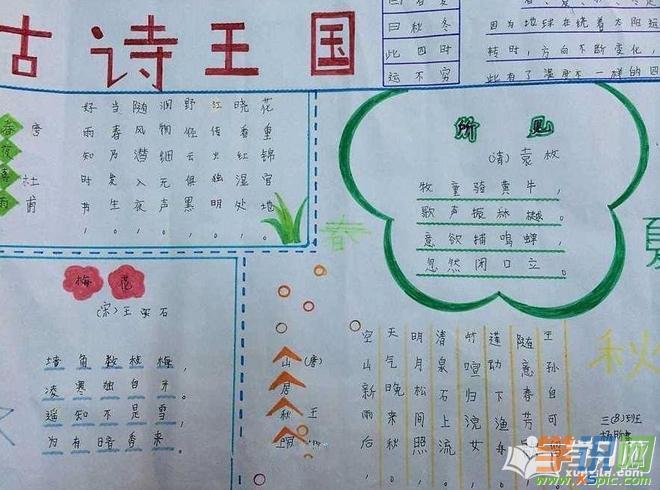 古诗王国
曰秋冬
此四时
运不穷
因为地球在绕着太阳运
转时，方向不断变化，
此有了温度不一样的四
春夜喜雨
唐
杜甫
好雨知时节，
当春乃发生。
随风潜入夜，
润物细元声。
野径云俱黑，
江传火独明。
晓看红湿处，
花重锦官地。
所见
(清)袁枚
牧童骑黄牛，
歌声振林樾。
意欲捕鸣蝉，
忽然闭口立。
春
夏
秋
梅花
(宋)王安石
墙角数枝梅，
凌寒独自开。
遥知不是雪，
为有暗香来。
山居秋暝
(唐)
王
空山新雨后
天气晚来秋
明月松间照
清泉石上流
竹喧归浣女
莲动下渔
随意春芳
王孙自可
三(8)班
学识网
xuexila.com
xspic.com